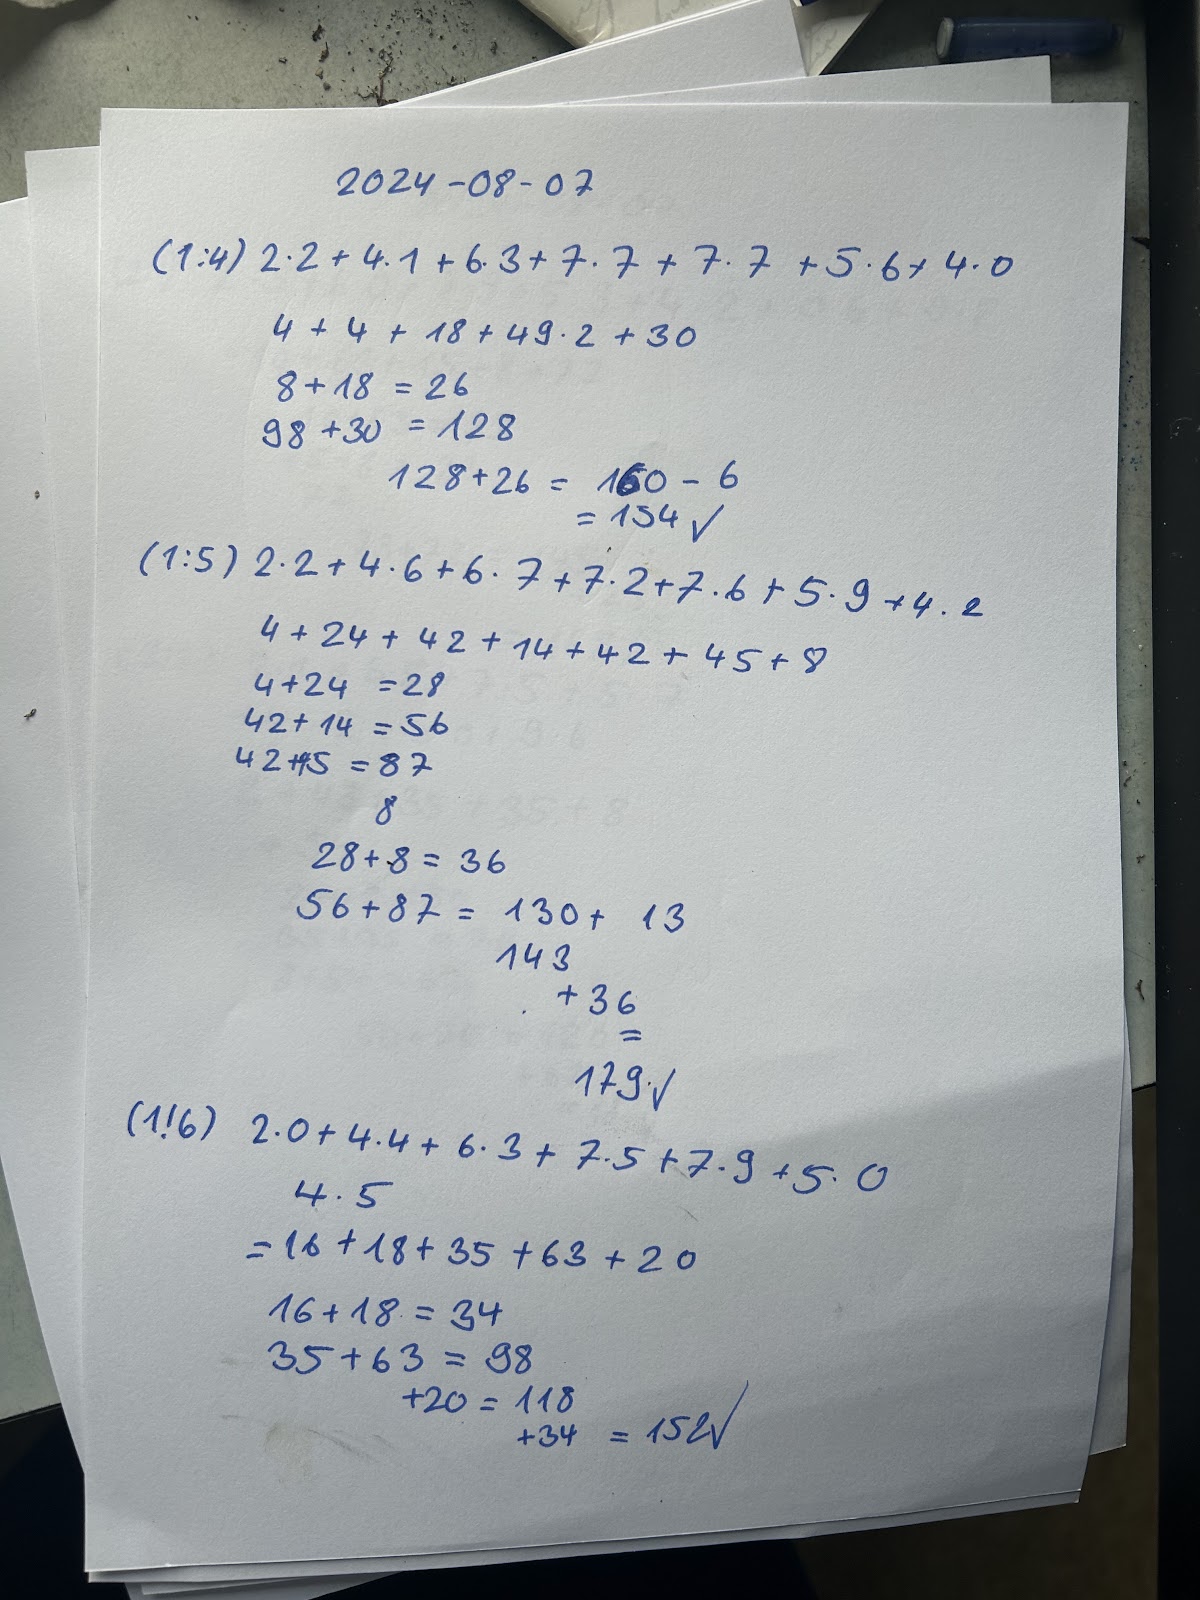 2024-08-07
(1:4) 2·2+4·1+6·3+7·7+7·7+5·6+4·0
4+4+18+49·2+30
8+18=26
98+30=128
128+26=160-6
=154✓
(1:5) 2·2+4·6+6·7+7·2+7·6+5·9+4·2
4+24+42+14+42+45+8
4+24=28
42+14=56
42+45=87
8
28+8=36
56+87=130+13
143
+36
=
179✓
(1!6) 2·0+4·4+6·3+7·5+7·9+5·0
4·5
=16+18+35+63+20
16+18=34
35+63=98
+20=118
+34=152✓